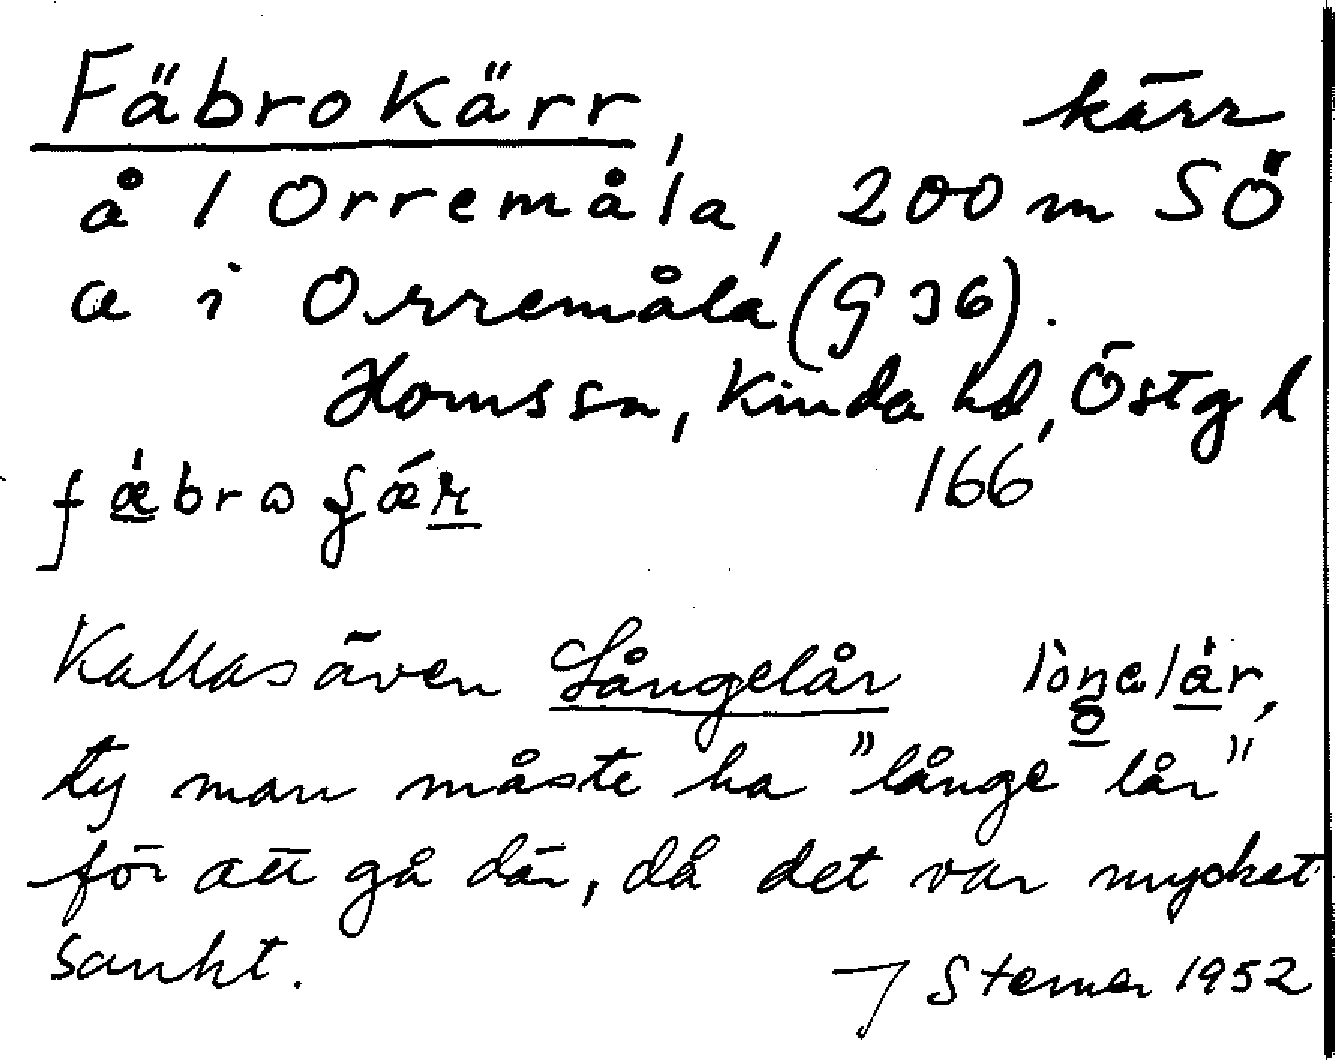 Fäbrokärr, kärr
å 1 Orremåla, 200 m SÖ
a i Orremåla (G 36).
Homs sn, Kinda hd, Östgl
166
Kallas även Långelår
ty man måste ha "långe lår"
för att gå där, då det var mycket
sankt.
J Sterner 1952